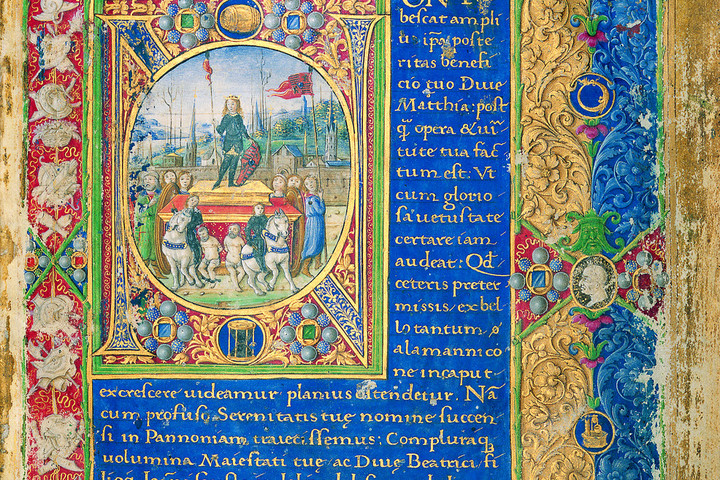 bescat ampli
us ip̅a poste
ritas benefi
cio tuo Diue
Matthia: post
q̅ opera & uir̅
tute tua fac
tum est: Vt
cum glorio
sa uetustate
certare iam
audeat: Qd̅
ceteris preter
missis, ex bel
lo tantum
alamannico
ne in caput
excrescere uideamur planius ostendetur. Na̅
cum profusi, Serenitatis tuę nomine succen
si in Pannoniam
volumina Maiestati tuę ac Diuę Beatrici fi